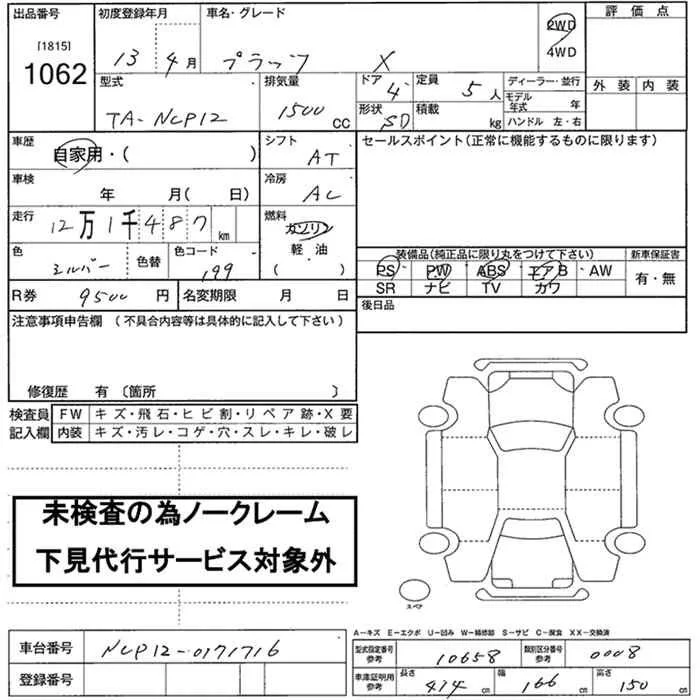 出品番号 初度登録年月 車名・グレード 評価点
[1815]
1062
13年 4月 プラッツ X
2WD
4WD
外装 内装
型式 排気量 ドア 4 定員 5人 ディーラー・並行
TA-NCP12 1500cc 形状 SD 積載 kg モデル年式 年
ハンドル 左・右
車歴 自家用・( ) シフト AT セールスポイント(正常に機能するものに限ります)
車検 年 月( 日) 冷房 AC
走行 12万1千487km 燃料 ガソリン
軽油
( )
色 シルバー 色替 色コード 199
装備品(純正品に限り丸をつけて下さい) 新車保証書
PS PW ABS エアB AW 有・無
SR ナビ TV カワ
R券 9500円 名変期限 月 日 後日品
注意事項申告欄 (不具合内容等は具体的に記入して下さい)
修復歴 有 〔箇所 〕
検査員 FW キズ・飛石・ヒビ割・リペア跡・X要
記入欄 内装 キズ・汚レ・コゲ・穴・スレ・キレ・破レ
未検査の為ノークレーム
下見代行サービス対象外
スペア
A-キズ E-エクボ U-凹み W-補修跡 S-サビ C-腐食 XX-交換済
車台番号 NCP12-0171716 型式指定番号参考 10658 類別区分番号参考 0008
登録番号 車庫証明用参考 長さ 414cm 幅 166cm 高さ 150cm